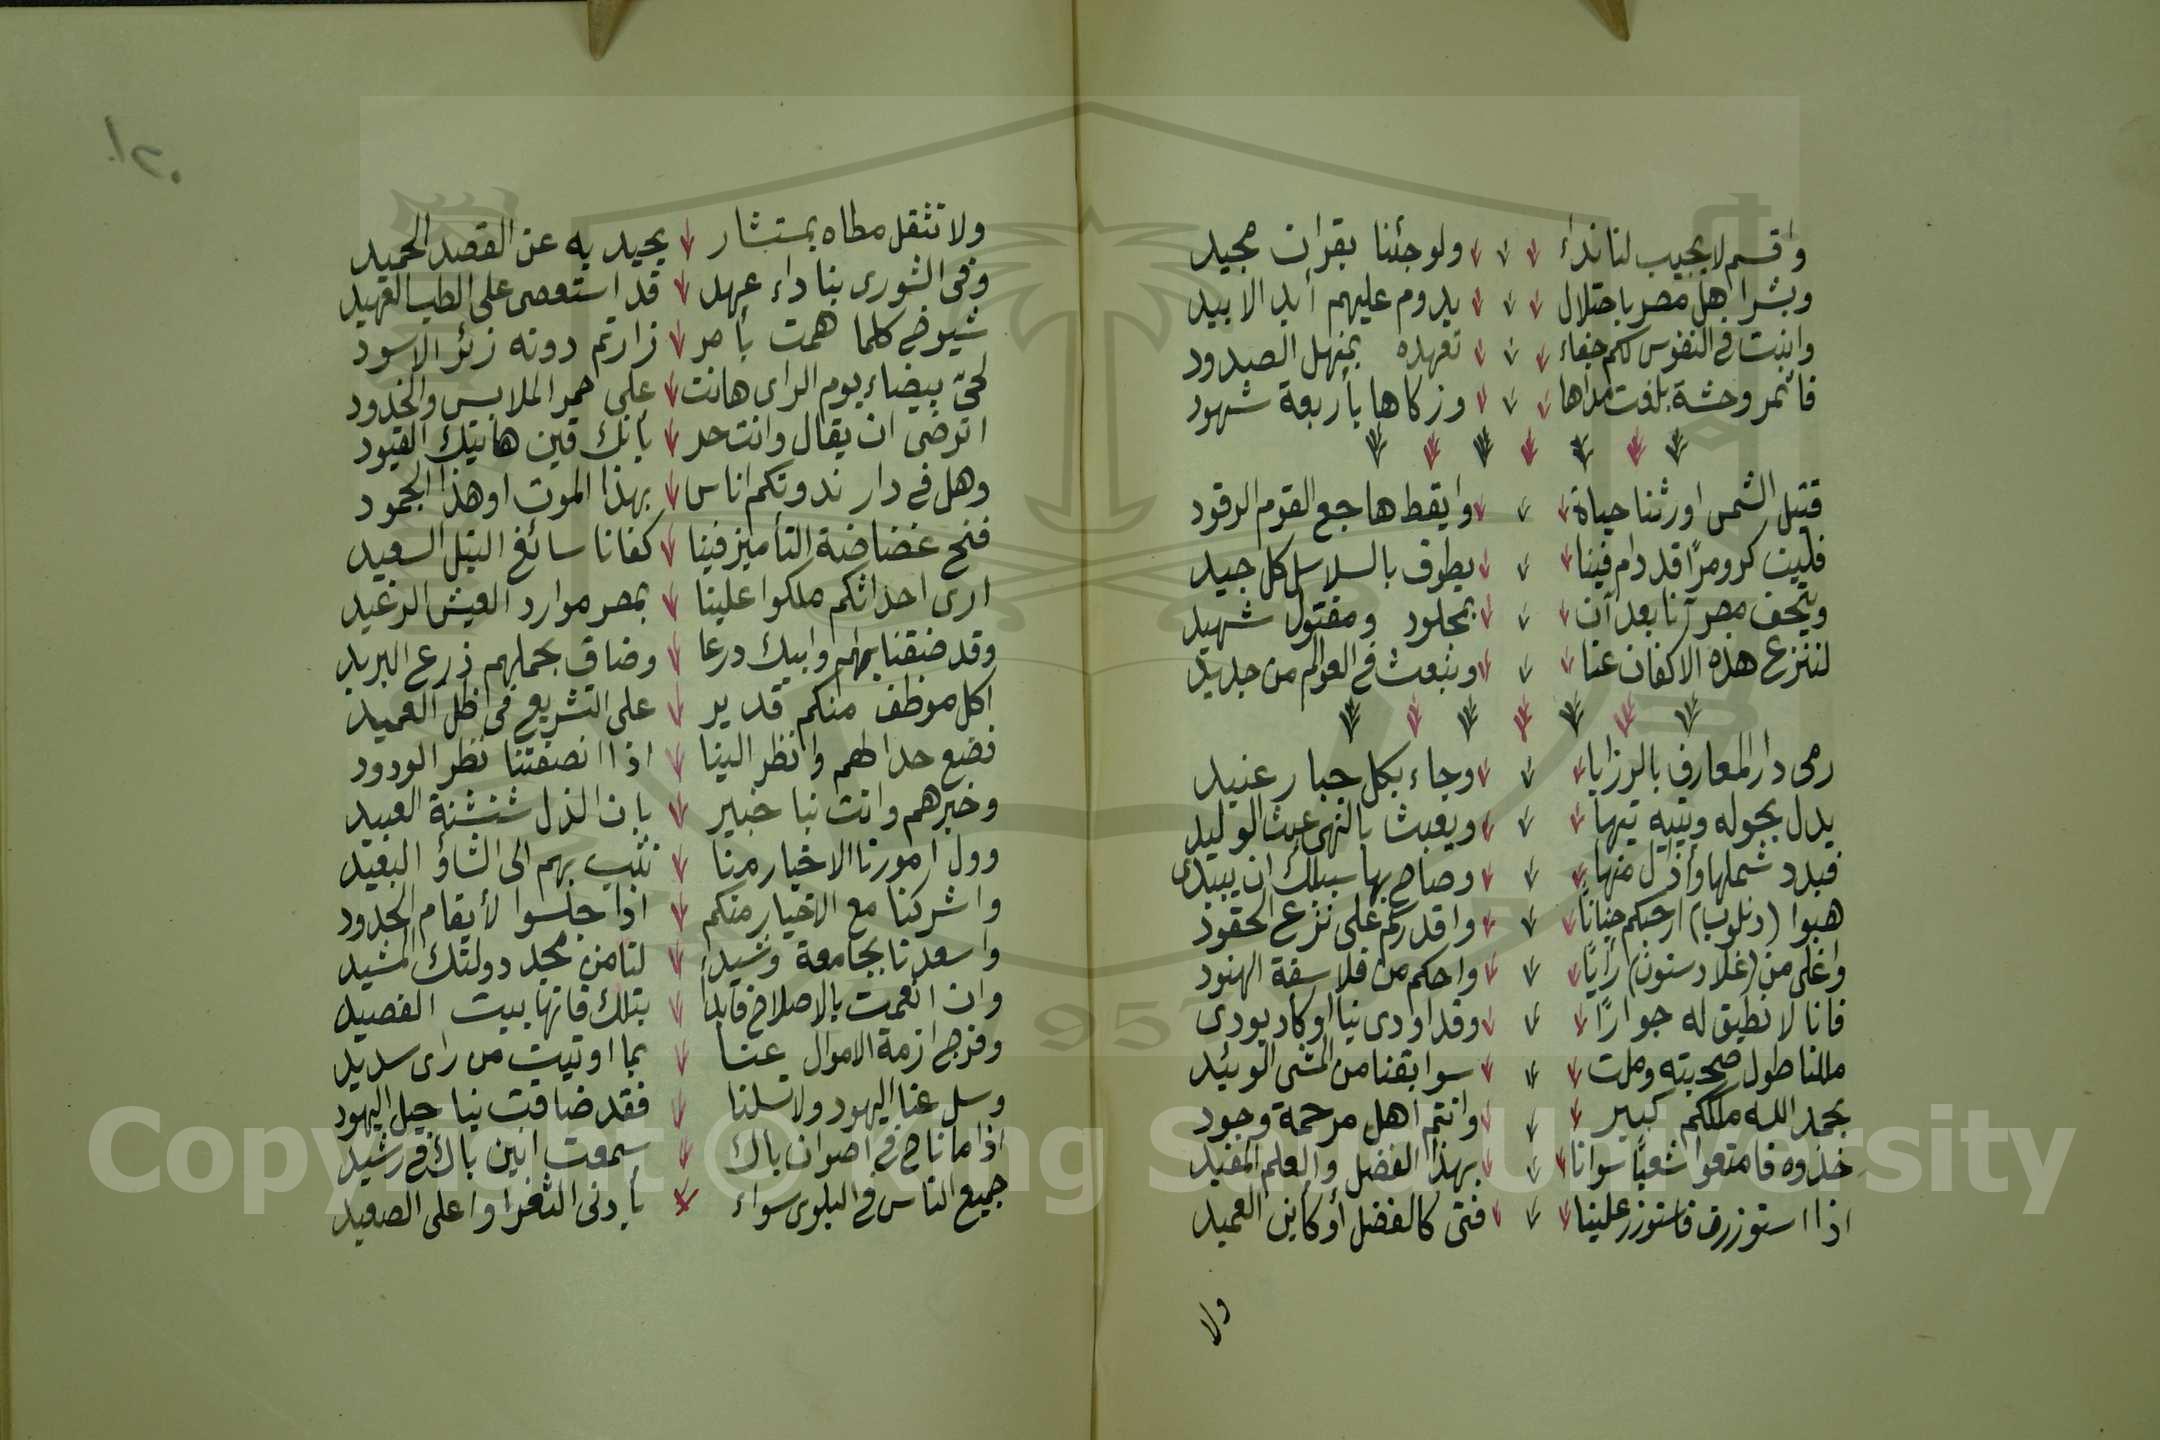 واقسم لا يجيب لنا نداء ولو جئنا بقران مجيد
وبشر اهل مصر باحتلال يدوم عليهم أبد الابيد
وانبت في النفوس لكم جفاء تعهده بمنهل الصدود
فاثمر وحشة بلغت مداها وزكاها بأربعة شهود
قتيل الشمس اورثنا حياة وايقظ هاجع القوم الرقود
فليت كرومرًا قد دام فينا يطوف بالسلاسل كل جيد
ويتحف مصر آنا بعد آن بمجلود ومقتول شهيد
لننزع هذه الاكفان عنا ونبعث في العوالم من جديد
رمى دار المعارف بالرزايا وجاء بكل جبار عنيد
يدل بحوله ويتيه تيها ويعبث بالنهى عبث الوليد
فبدد شملها وأدال منها وصاح بها سبيلك ان تبيدى
هبوا (دنلوب) ارحبكم جنانًا واقدركم على نزع الحقود
واغلى من (غلادستون) رأيًا واحكم من فلاسفة الهنود
فانا لا نطيق له جوارًا وقد اودى بنا او كاد يودى
مللنا طول صحبته وملت سوابقنا من المشى الوئيد
بحمد الله ملككم كبير وانتم اهل مرحمة وجود
خذوه فامتعوا شعبًا سوانا بهذا الفضل والعلم المفيد
اذا استوزرت فاستوزر علينا فتى كالفضل أو كابن العميد
ولا
١٢٠
ولا تثقل مطاه بمستشار يحيد به عن القصد الحميد
وفى الشورى بنا داء عهد قد استعصى على الطب العهيد
شيوخ كلما همت بأمر زارتم دونه زئر الاسود
لحى بيضاء يوم الراى هانت على حمر الملابس والخدود
اترضى ان يقال وانت حر بأنك قين هاتيك القيود
وهل في دار ندوتكم اناس بهذا الموت او هذا الجمود
فنح غضاضة التأميز فينا كفانا سائغ النيل السعيد
ارى احداثكم ملكوا علينا بمصر موارد العيش الرغيد
وقد ضقنا بهم وابيك درعا وضاق بحملهم ذرع البريد
اكل موظف منكم قدير على التشريع فى ظل العميد
فضع حدا لهم وانظر الينا اذا انصفتنا نظر الودود
وخبرهم وانت بنا خبير بان الذل شنشنة العبيد
وول امورنا الاخيار منا نثب بهم الى الشأو البعيد
واشركنا مع الاخيار منكم اذا جلسوا لأيقام الحدود
واسعدنا بجامعة وشيد لنا من مجد دولتك المشيد
وان انعمت بالاصلاح فابدا بتلك فانها بيت القصيد
وفرج ازمة الاموال عنا بما اوتيت من راى سديد
وسل عنا اليهود ولا تسلنا فقد ضاقت بنا حيل اليهود
اذا ما ناح في اصوان باك سمعت انين باك فى رشيد
جميع الناس في البلوى سواء بأدنى الثغر او اعلى الصعيد
Copyright © King Saud University
1957